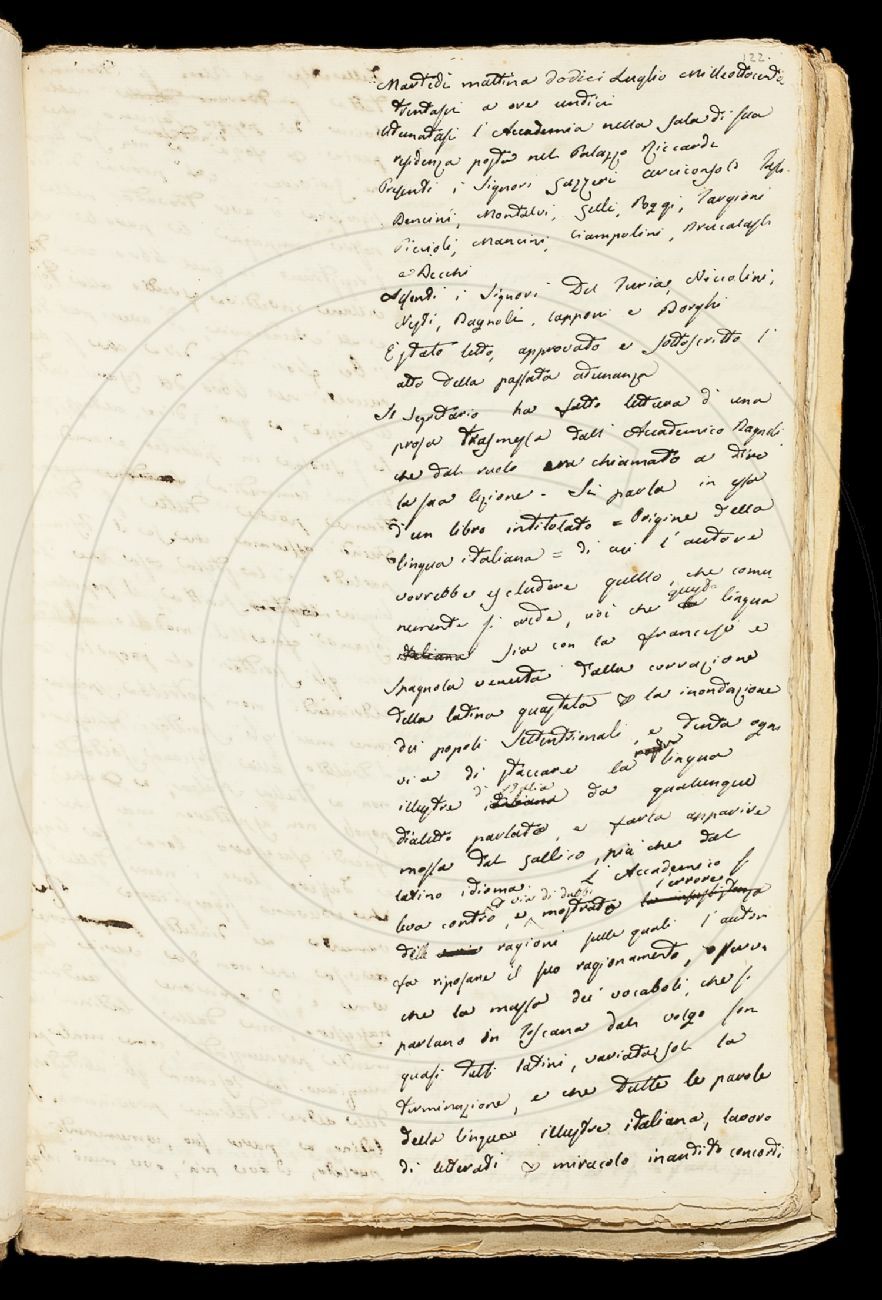 122.
Martedì mattina dodici Luglio Milleottocento
trentasei a ore undici
Adunatasi l'Accademia nella sala di sua
residenza posta nel Palazzo Riccardi
Presenti i Signori Gazzeri arciconsolo
Bencini, Montalvi, Gelli, Poggi, Targioni
Piccioli, Mancini, Ciampolini, Brucalassi
e Becchi
Assenti i Signori Del Furia, Niccolini,
Nesti, Bagnoli, Capponi e Borghi
È stato letto, approvato e sottoscritto l'
atto della passata adunanza
Il Segretario ha fatto lettura di una
prosa trasmessa dall'Accademico Bagnoli
che dal ruolo era chiamato a dire
la sua lezione. Si parla in essa
d'un libro intitolato = Origine della
lingua italiana = di cui l'autore
vorrebbe escludere quello, che comu
nemente si crede, cioè che questa la lingua
italiana sia con la francese e
spagnola venuta dalla corruzione
della latina guastata per la inondazione
dei popoli settentrionali, e tenta ogni
via di staccare la nostra lingua
illustre d'Italia italiana da qualunque
dialetto parlato, e farla apparire
mossa dal gallico, più che dal
latino idioma. L'Accademico si
leva contro, e mostrato l'errore la insussistenza
delle ragioni sulle quali l'autore
fa riposare il suo ragionamento, osserva
che la massa dei vocaboli, che si
parlano in Toscana dal volgo son
quasi tutti latini, variata sol la
terminazione, e che tutte le parole
della lingua illustre italiana, lavoro
di letterati per miracolo inaudito concordi